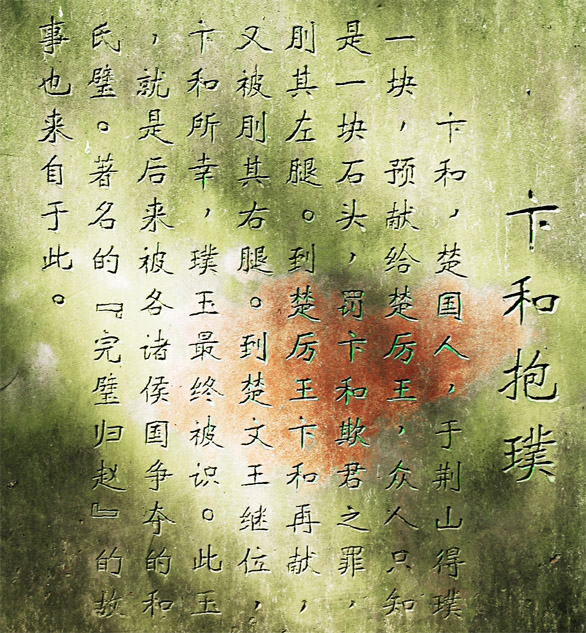 卞和抱璞
卞和，楚国人，于荆山得璞
一块，预献给楚厉王，众人只知
是一块石头，罚卞和欺君之罪，
刖其左腿。到楚厉王卞和再献，
又被刖其右腿。到楚文王继位，
卞和所幸，璞玉最终被识。此玉
，就是后来被各诸侯国争夺的和
氏璧。著名的『完璧归赵』的故
事也来自于此。